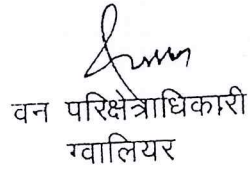 वन परिक्षेत्राधिकारी
ग्वालियर